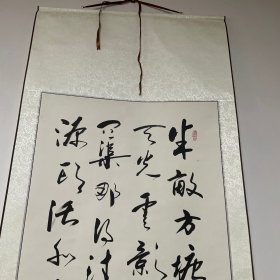 半畝方塘
天光雲影
問渠那得清
源頭活水